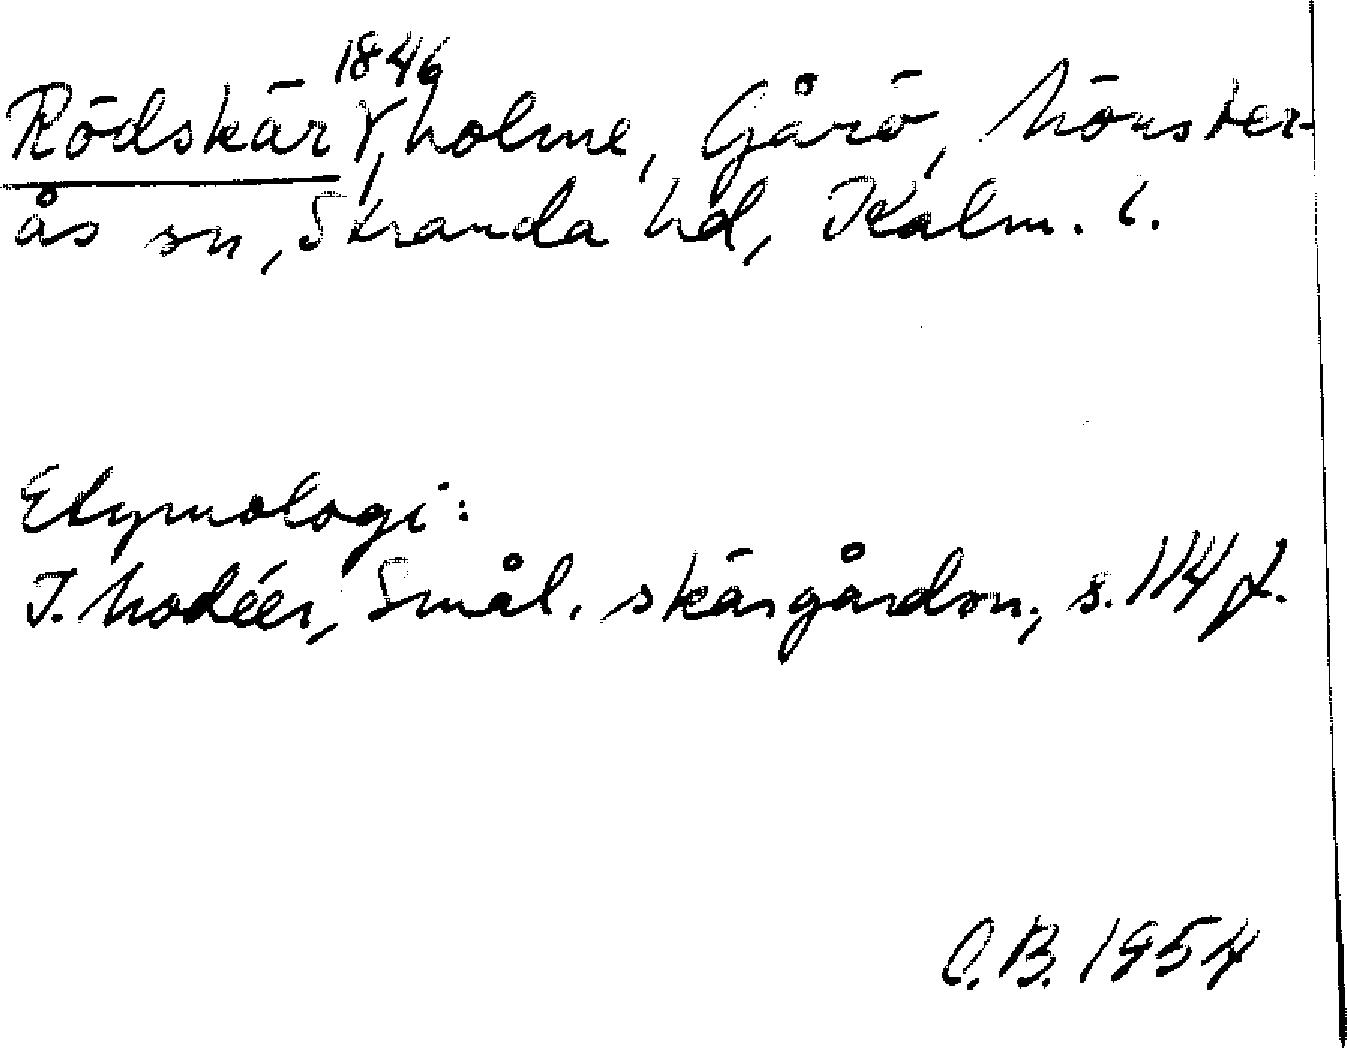 Rödskär 1846, holme, Gårö, Mönster-
ås sn, Stranda hd, Kalm. l.
Etymologi:
I. Modéer, Smål. skärgårdsn., s. 114 f.
C.B. 1954